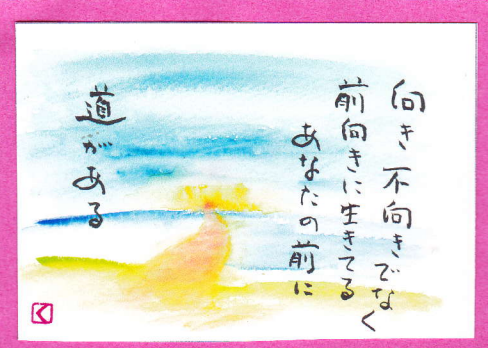 向き不向きでなく
前向きに生きてる
あなたの前に
道がある
く